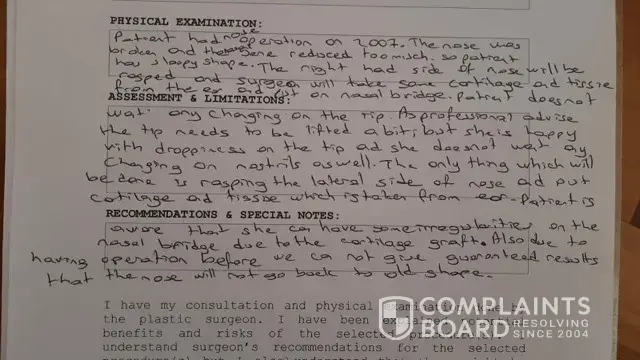 PHYSICAL EXAMINATION:
Patient had nose operation on 2007. The nose was
broken and the bone reduced too much. So patient
has sloopy shape. The right had side of nose will be
rasped and surgeon will take some cartilage ad tissie
from the ear ad put on nasal bridge. Patient does not
ASSESSMENT & LIMITATIONS:
wat any changing on the tip. As professional advise
the tip needs to be lifted a bit; but she is happy
with droppiness on the tip ad she doesnot wat ay
changing on nostrils as well. The only thing which will
be done is rasping the lateral side of nose ad put
cartilage ad tissie which is taken from ear. Patient is
RECOMMENDATIONS & SPECIAL NOTES:
aware that she can have some irregularities on the
nasal bridge due to the cartilage graft. Also due to
having operation before we ca not give guaranteed results
that the nose will not go back to old shape.
I have my consultation and physical by
the plastic surgeon. I have been
benefits and risks of the selected
understand surgeon's recommendations for the selected
COMPLAINTS
BOARD RESOLVING
SINCE 2004